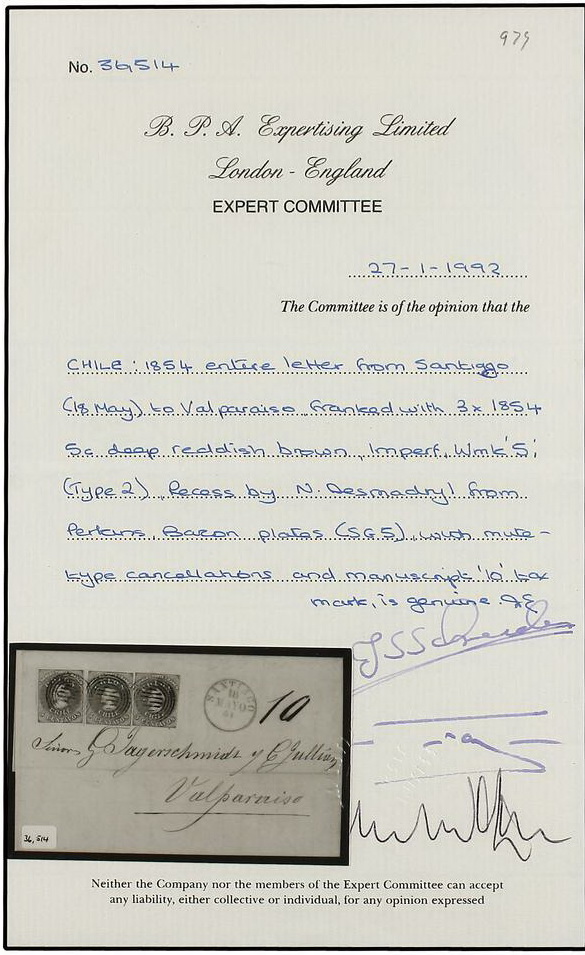 979
No. 36,514
B. P. A. Expertising Limited
London - England
EXPERT COMMITTEE
27-1-1992
The Committee is of the opinion that the
CHILE: 1854 entire letter from Santiago
(18 May) to Valparaiso, franked with 3x 1854
5c deep reddish brown, Imperf, Wmk '5',
(Type 2) Recess by N. Desmadryl from
Perkins, Bacon plates (SG5), with mute-
type cancellations and manuscript '10' tax
mark, is genuine.
SANTIAGO
18
MAYO
10
Señores G Jagerschmidt y C Jullian
Valparaiso
36,514
Neither the Company nor the members of the Expert Committee can accept
any liability, either collective or individual, for any opinion expressed